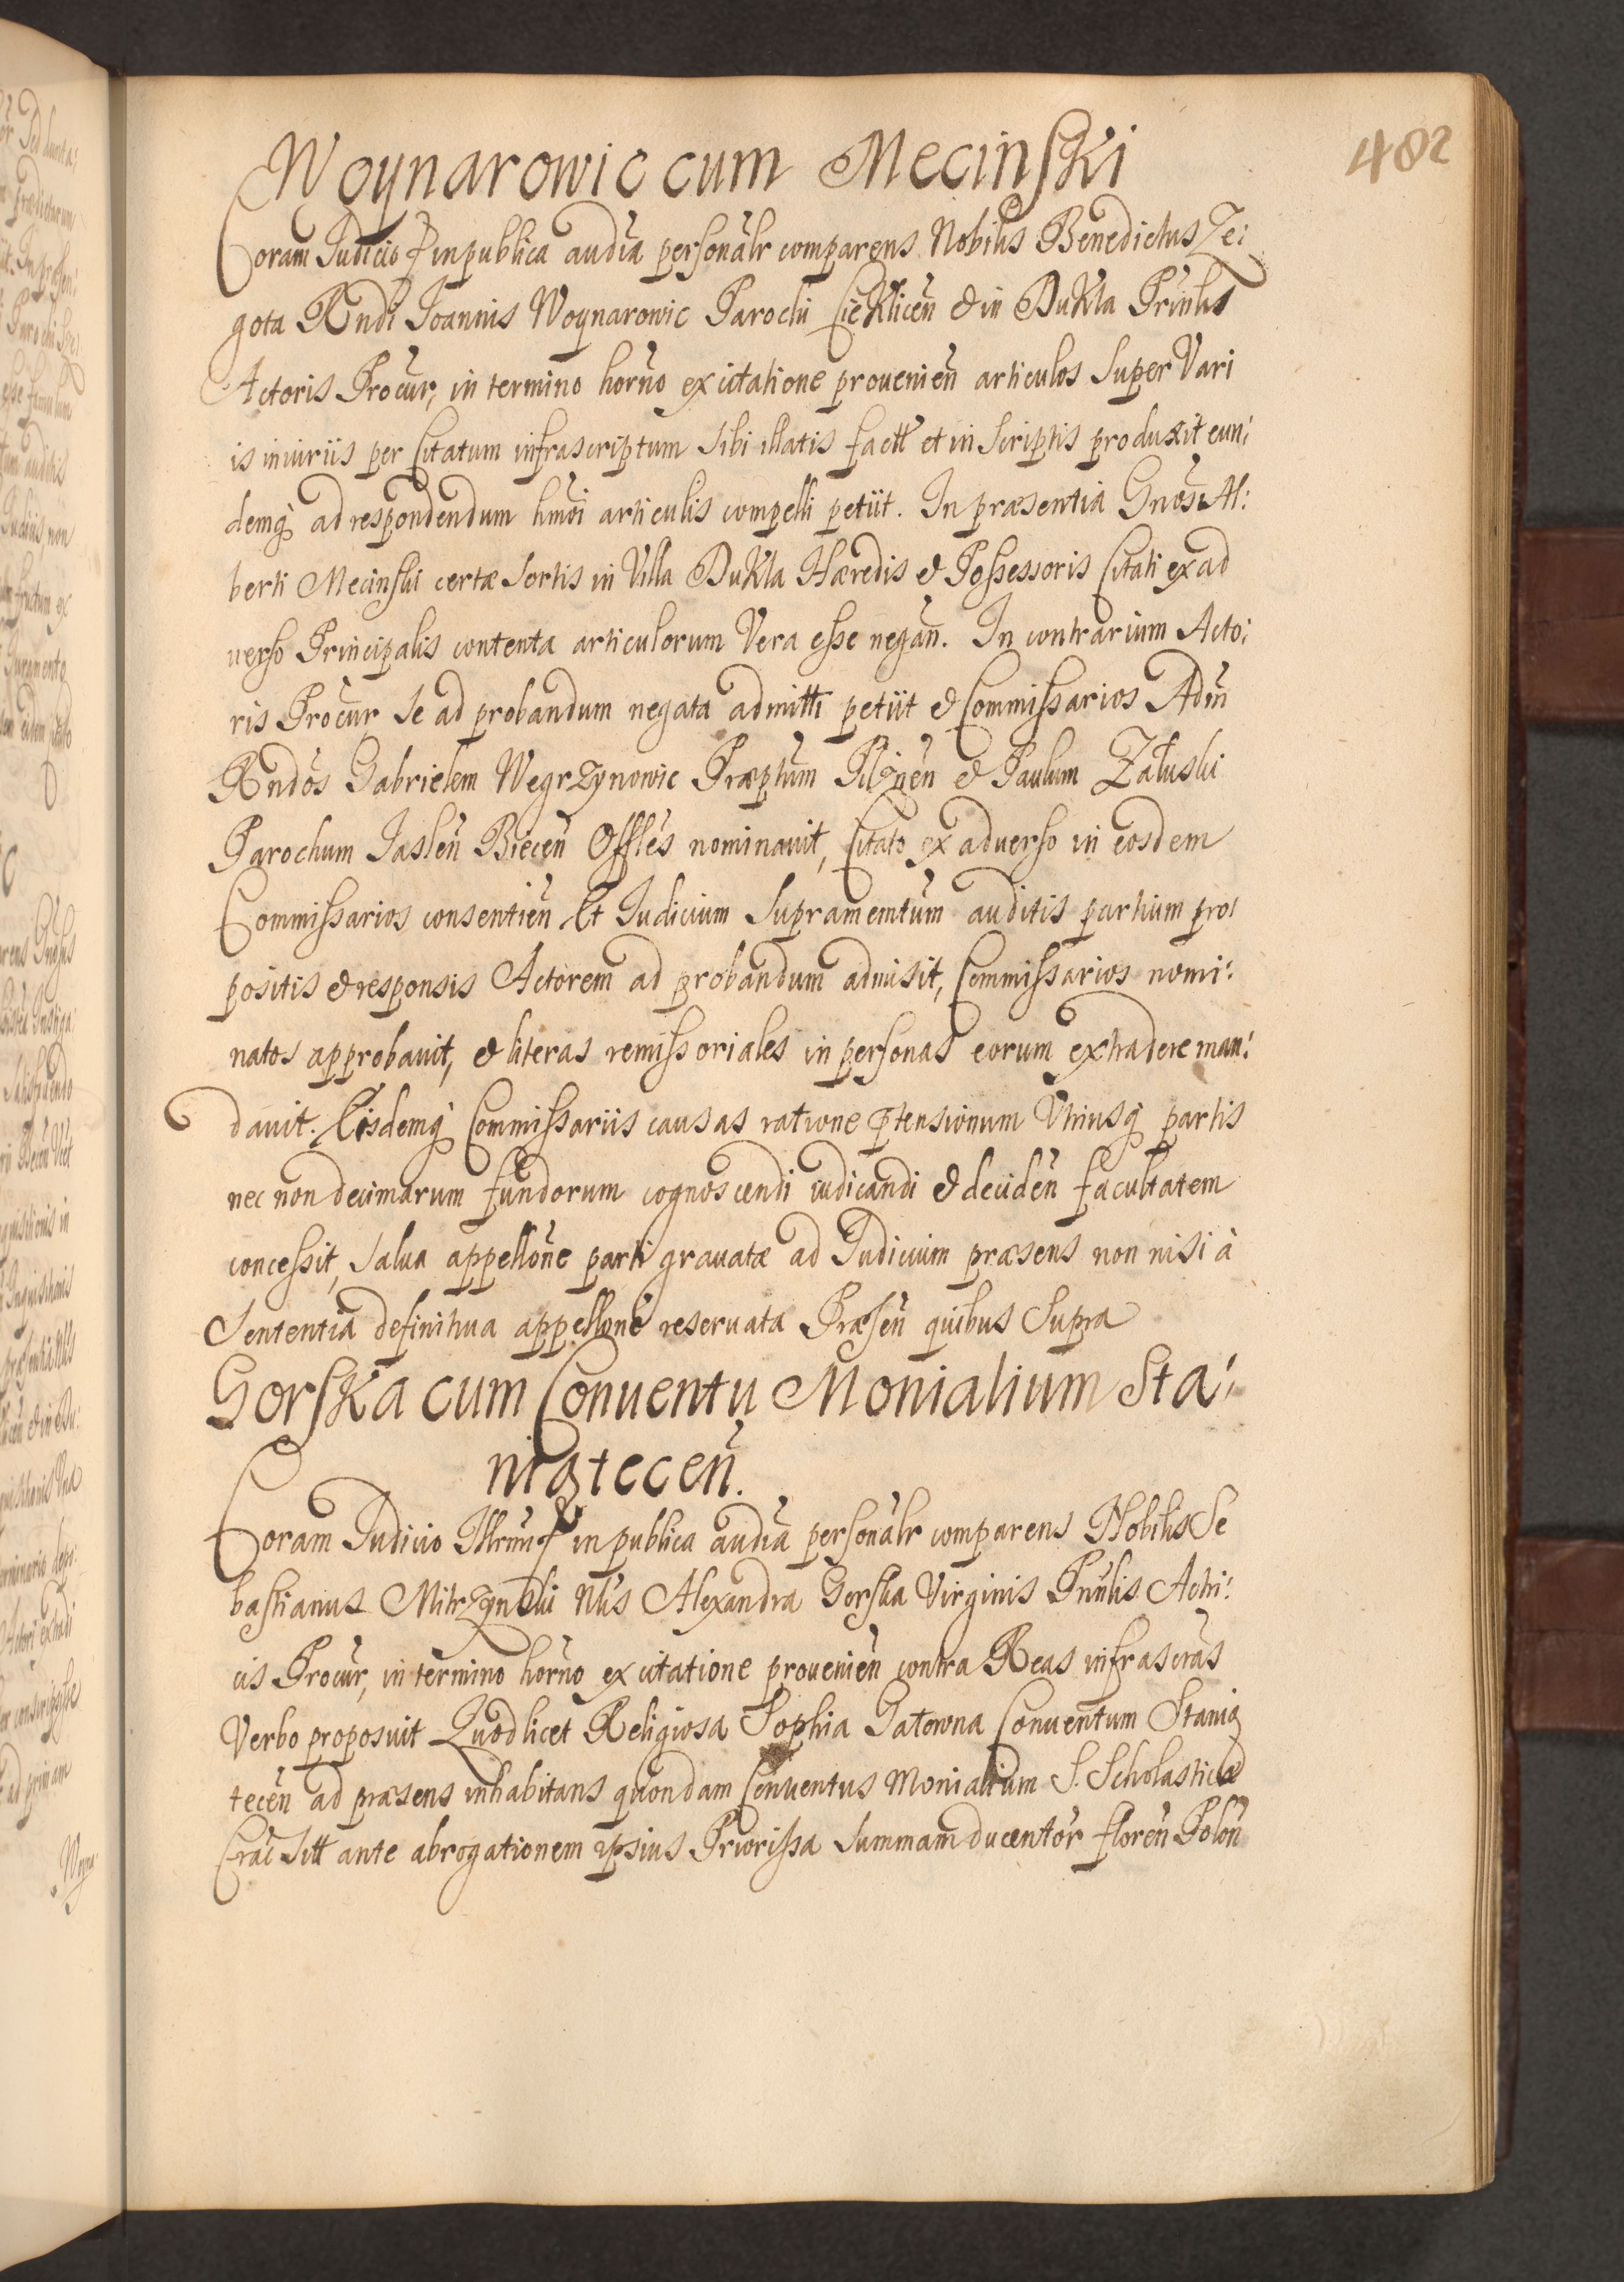 482
Woynarowic cum Mecinski
Coram Judicio in publica audia personalr comparens Nobilis Benedictus Ze:
gota Rndi Joannis Woynarowic Parochi Cieklicen & in Dukla Prinlis
Actoris Procur, in termino horno ex citatione prouenien articulos super Vari
is iniuriis per Citatum infrascriptum sibi illatis fact et in scriptis produxit eun:
demq ad respondendum hmoi articulis compelli petiit. In præsentia Gnosi Al:
berti Mecinski certæ sortis in Villa Dukla Hæredis & Possessoris Citati ex ad
uerso Principalis contenta articulorum Vera esse negan. In contrarium Acto:
ris Procur se ad probandum negata admitti petiit & Commissarios Adm
Rndos Gabrielem Wegrzynowic Præptum Pilznen & Paulum Załuski
Parochum Jaslen Biecen Offles nominauit, Citato ex aduerso in eosdem
Commissarios consentien Et Judicium supramemtum auditis partium pro:
positis & responsis Actorem ad probandum admisit, Commissarios nomi:
natos approbauit, & literas remissoriales in personas eorum extradere man:
dauit. Eisdemq Commissariis causas ratione ptensionum Vtriusq partis
nec non decimarum fundorum cognoscendi iudicandi & deciden facultatem
concessit, salua appellone parti grauatæ ad Judicium præsens non nisi à
Sententia definitiua appellone reseruata Præsen quibus supra
Gorska cum Conuentu Monialium Sta:
niątecen.
Coram Judicio Illrmi in publica audia personalr comparens Nobilis Se
bastianus Mitrzynski Nlis Alexandra Gorska Virginis Prnlis Actri:
cis Procur, in termino horno ex citatione prouenien contra Reas infrascras
Verbo proposuit Quod licet Religiosa Sophia Gatowna Conuentum Stanią
tecen ad præsens inhabitans quondam Conuentus Monialium S. Scholasticæ
Crac sitt ante abrogationem ipsius Priorissa summam ducentor floren Polon